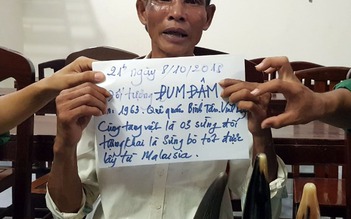 21h ngày 8/10/2018
Đối tượng ĐUM ĐÂM
1963. Quê quán Bình Tân, Vĩnh
Cùng tang vật là 03 sừng đôi
tang khai là Sừng bò tót được
lấy từ Malaysia.